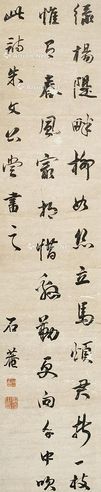 綠楊隄畔柳如絲立馬煩君折一枝
惟有春風最相惜殷勤更向手中吹
此詩朱文公嘗書之
石菴